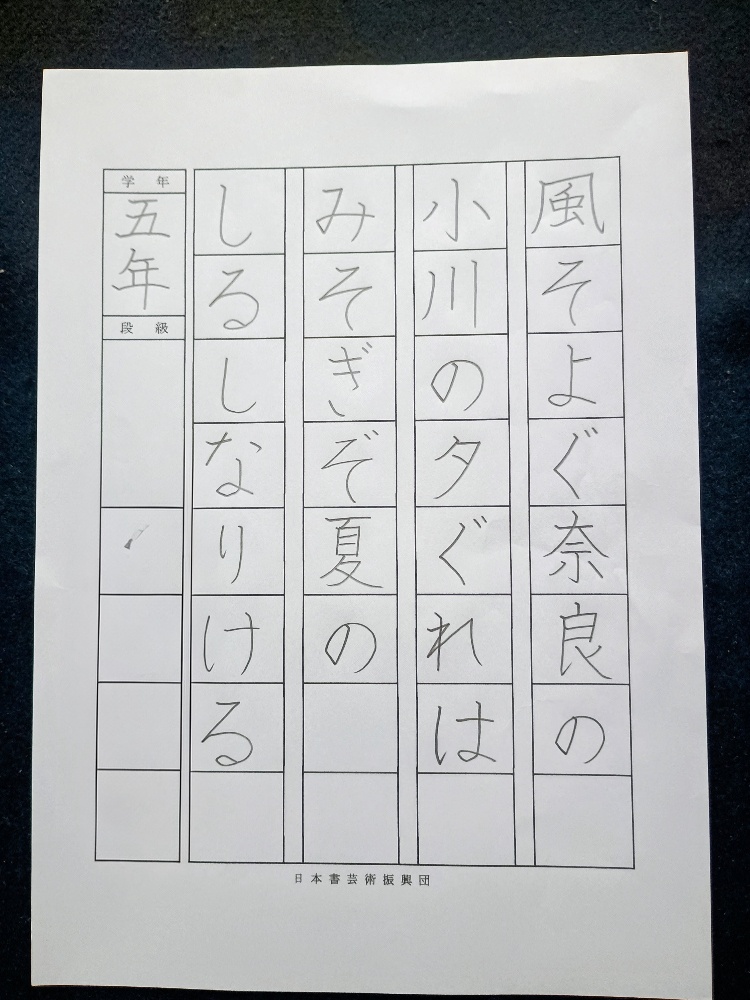 風そよぐ奈良の
小川の夕ぐれは
みそぎぞ夏の
しるしなりける
学年
五年
段級
日本書芸術振興団